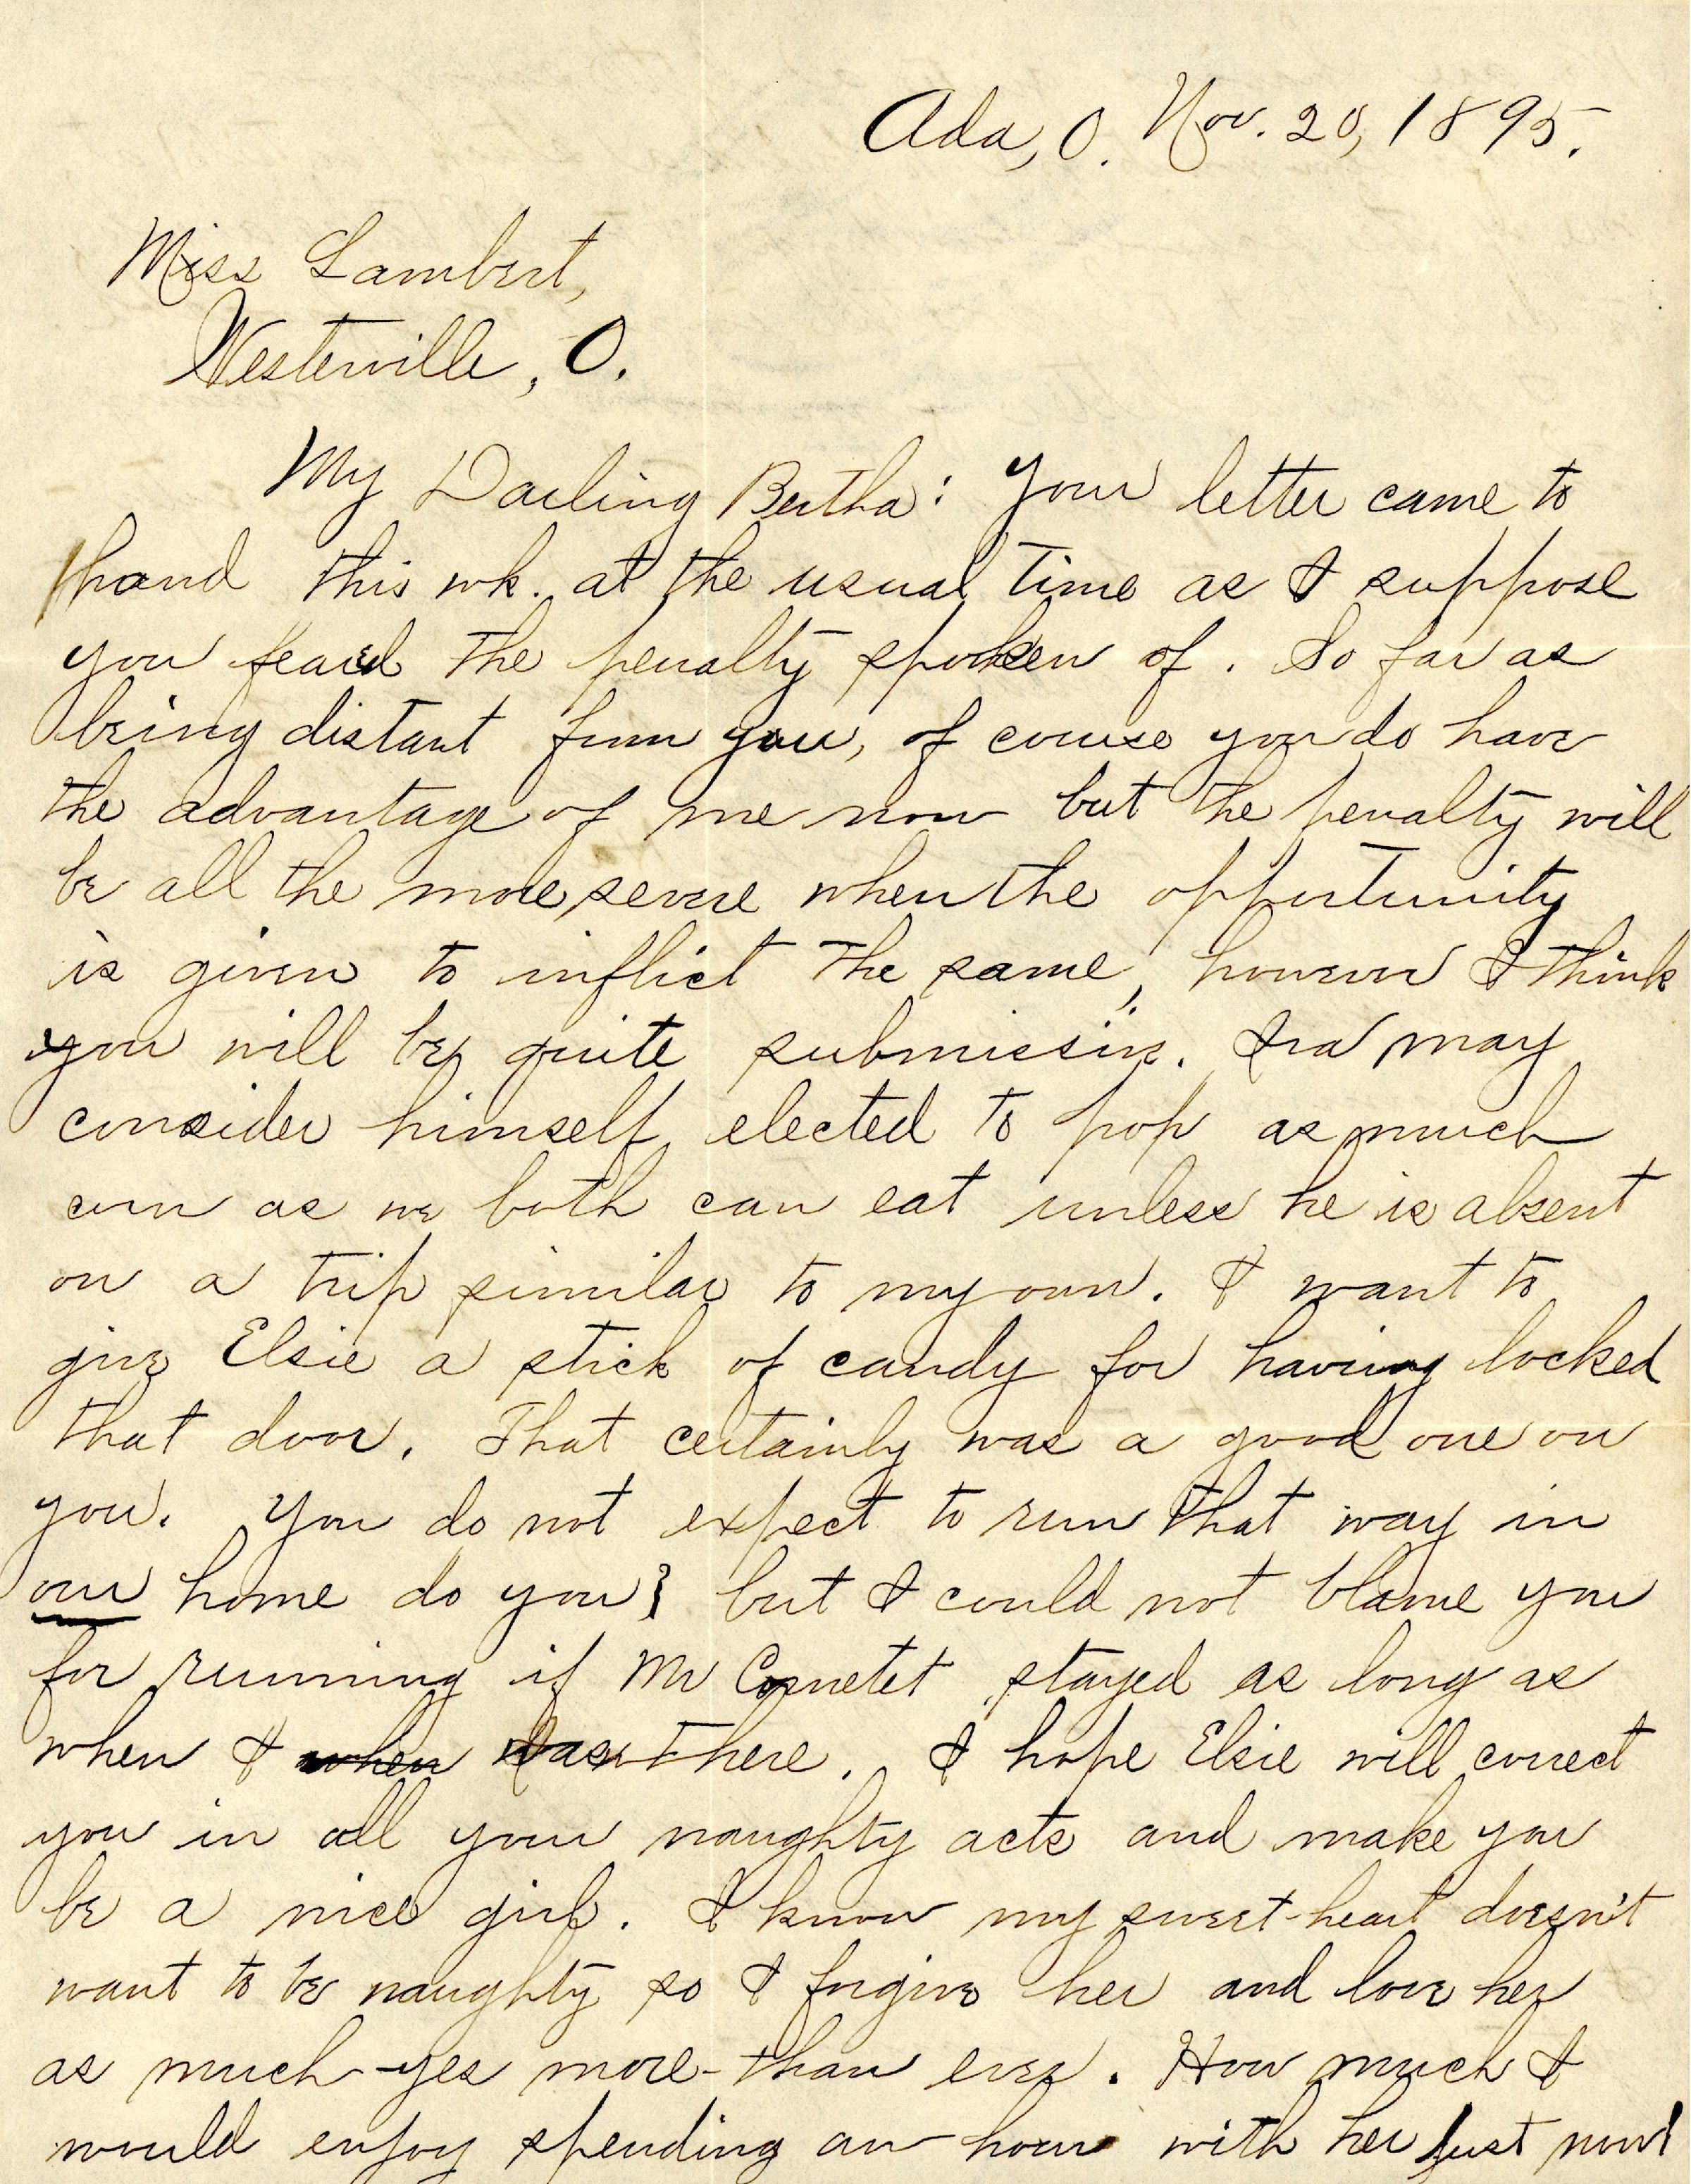 Ada, O. Nov. 20, 1895.
Miss Lambert,
Westerville, O.
My Darling Bertha: Your letter came to
hand this wk. at the usual time as I suppose
you feared the penalty spoken of. So far as
being distant from you, of course you do have
the advantage of me now but the penalty will
be all the more severe when the opportunity
is given to inflict the same, however I think
you will be quite submissive. Ira may
consider himself elected to pop as much
corn as we both can eat unless he is absent
on a trip similar to my own. I want to
give Elsie a stick of candy for having locked
that door. That certainly was a good one on
you. You do not expect to run that way in
our home do you? but I could not blame you
for running if Mr Cornetet stayed as long as
when I when was there. I hope Elsie will correct
you in all your naughty acts and make you
be a nice girl. I know my sweet-heart doesn't
want to be naughty so I forgive her and love her
as much-yes more-than ever. How much I
would enjoy spending an hour with her just now!